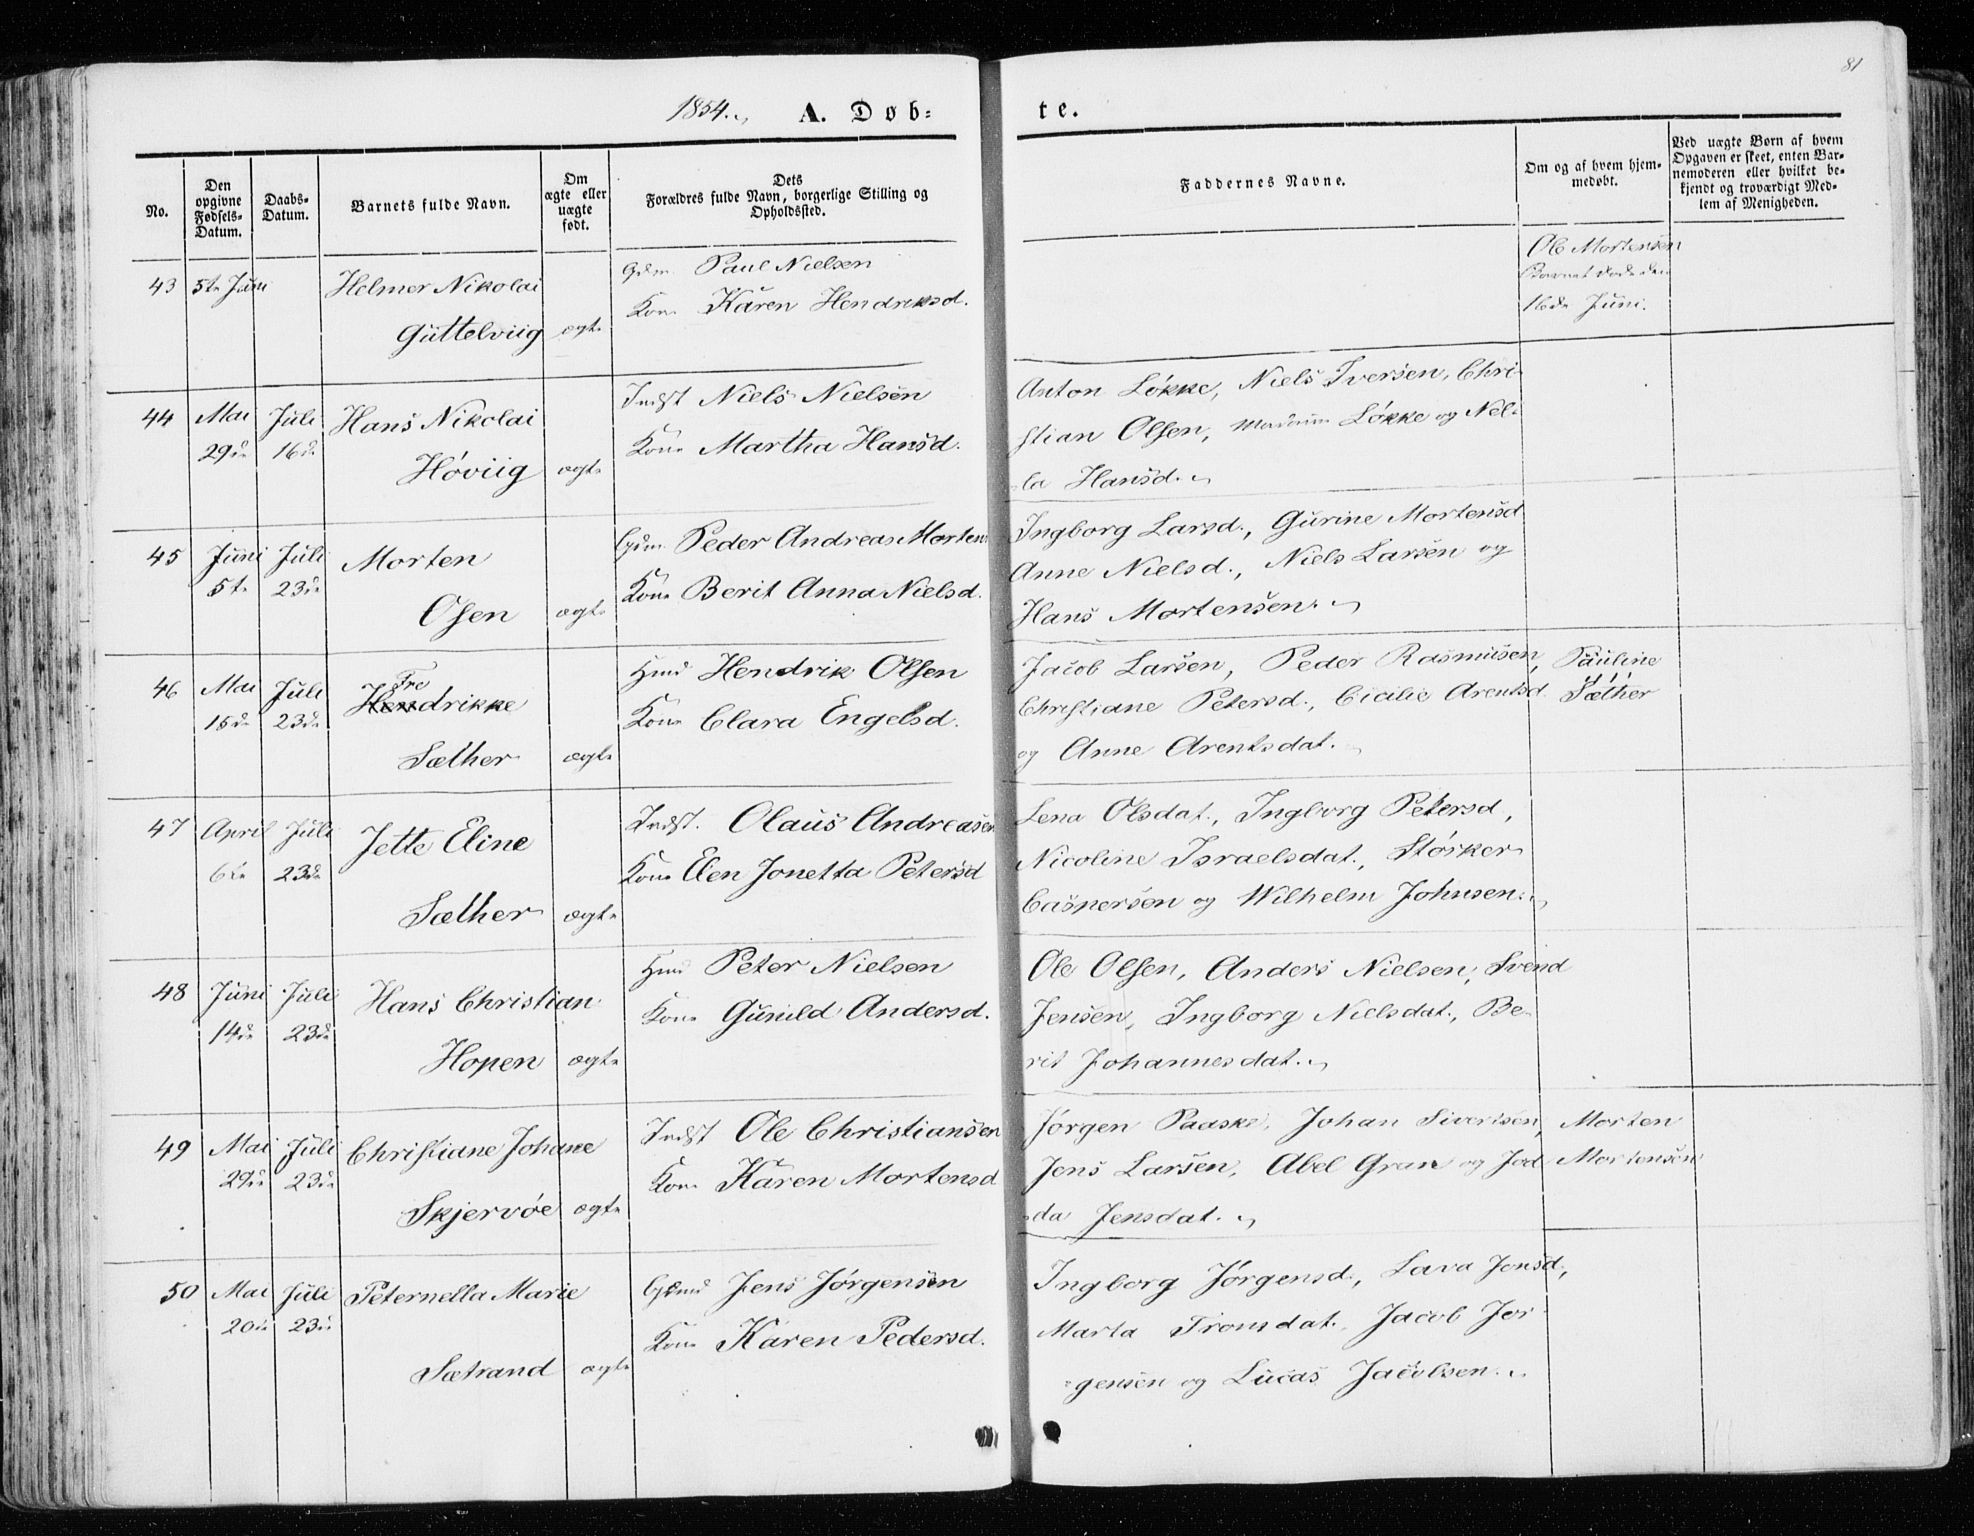 81
1854. A. Døb-
te.
No.
Den opgivne Fødsels-Datum.
Daabs-Datum.
Barnets fulde Navn.
Om ægte eller uægte født.
Dets
Forældres fulde Navn, borgerlige Stilling og
Opholdssted.
Faddernes Navne.
Om og af hvem hjem-
medøbt.
Ved uægte Børn af hvem
Opgaven er skeet, enten Bar-
nemoderen eller hvilket be-
kjendt og troværdigt Med-
lem af Menigheden.
43 5te Juni Helmer Nikolai
Guttelviig ægte
Gdm. Paul Nielsen
Kone Karen Hendriksd.
Ole Mortensen
Barnet døde den
16de Juni.
44 Mai Juli Hans Nikolai
29de 16de Høviig ægte
Indst Niels Nielsen
Kone Martha Hansd.
Anton Løkke, Niels Iversen, Chri-
stian Olsen, Madame Løkke og Nel-
la Hansd.
45 Juni Juli Morten
5te 23de Osen ægte
Gdm. Peder Andreas Morten
Kone Berit Anna Nielsd.
Ingborg Larsd., Gurine Mortensd
Anne Nielsd., Niels Larsen og
Hans Mortensen.
46 Mai Juli Hendrikke
Fre
15de 23de Sæther ægte
Hmd Hendrik Olsen
Kone Clara Engelsd.
Jacob Larsen, Peder Rasmusen,
Christiane Petersd., Cicilie Arentsd.
og Anne Arentsdat.
Pauline
Sæther
47 April Juli Jette Eline
6te 23de Sæther ægte
Indst. Olaus Andreasen
Kone Elen Jonetta Petersd
Lena Olsdat., Ingborg Petersd,
Nicoline Israelsdat., Størker
Caspersen og Wilhelm Johnsen.
48 Juni Juli Hans Christian
14de 23de Hopen ægte
Hmd Peter Nielsen
Kone Gunild Andersd.
Ole Olsen, Anders Nielsen, Svend
Jensen, Ingborg Nielsdat., Be-
rit Johannesdat.
49 Mai Juli Christiane Johane
29de 23de Skjervøe ægte
Indst Ole Christiansen
Kone Karen Mortensd
Jørgen Paaske, Johan Sivertsen,
Jens Larsen, Abel Gran og Jad-
da Jensdat.
Morten
Mortensen
50 Mai Juli Peternella Marie
20de 23de Sætrand ægte
Gbmd Jens Jørgensen
Kone Karen Pedersd.
Ingborg Jørgensd, Lava Jensd,
Marta Tromsdat., Jacob Jør-
gensen og Lucas Jacobsen.